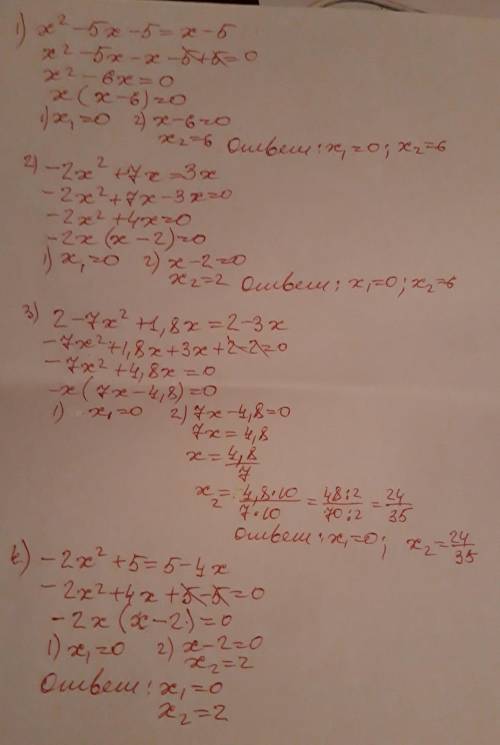 1) x² - 5x - 5 = x - 5
x² - 5x - x - 5 + 5 = 0
x² - 6x = 0
x (x - 6) = 0
1) x₁ = 0 2) x - 6 = 0
x₂ = 6 Ответ: x₁ = 0; x₂ = 6
2) -2x² + 7x = 3x
-2x² + 7x - 3x = 0
-2x² + 4x = 0
-2x (x - 2) = 0
1) x₁ = 0 2) x - 2 = 0
x₂ = 2 Ответ: x₁ = 0; x₂ = 6
3) 2 - 7x² + 1,8x = 2 - 3x
-7x² + 1,8x + 3x + 2 - 2 = 0
-7x² + 4,8x = 0
-x (7x - 4,8) = 0
1) x₁ = 0 2) 7x - 4,8 = 0
7x = 4,8
x = 4,8/7
x₂ = 4,8·10/7·10 = 48:2/70:2 = 24/35
Ответ: x₁ = 0; x₂ = 24/35
4) -2x² + 5 = 5 - 4x
-2x² + 4x + 5 - 5 = 0
-2x (x - 2) = 0
1) x₁ = 0 2) x - 2 = 0
x₂ = 2
Ответ: x₁ = 0
x₂ = 2